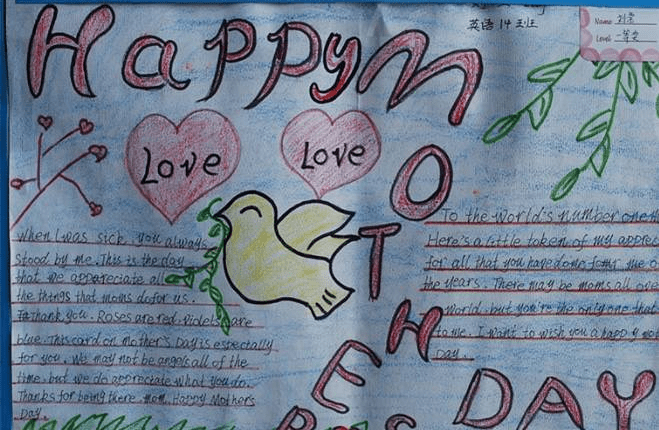 Happy MOTHER
DAY
英语14班
Name
Level 一等奖
Love
Love
When I was sick, you always
stood by me. This is the day
that we appareciate all
the things that moms do for us.
Tathank you. Roses are red. violets are
blue. This card on mother's Day is especially
for you. We may not be angels all of the
time. but we do appreciate what you do.
Thanks for being there mom. Happy Mothers
Day.
To the world's number one
Here's a little token of my
for all that you have done
the years. There may be moms all
world. but you're the only one that
to me. I want to wish you a happy
Day.